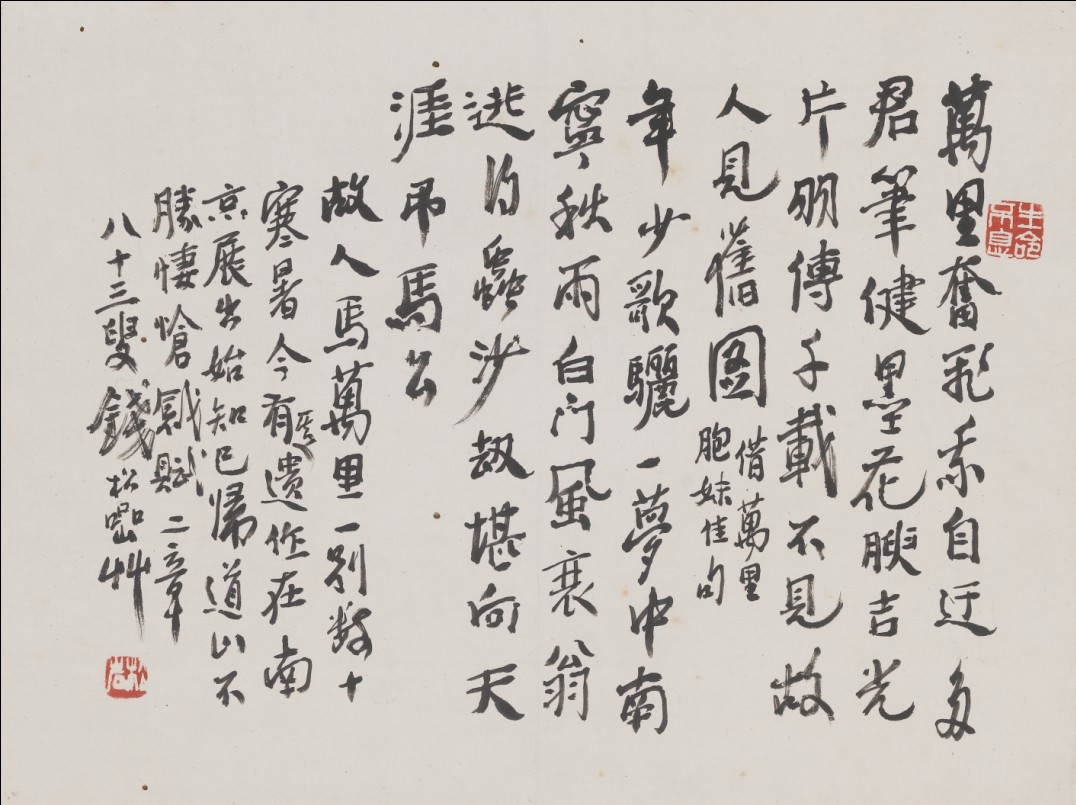 萬里奮飛系自迂多
君筆健墨花腴吉光
片羽傳千載不見故
人見舊图
借萬里
胞妹佳句
年少歌驪一夢中南
寧秋雨白门風衰翁
逃自蟲沙劫堪向天
涯吊馬公
故人馬萬里一别数十
寒暑今有其遗作在南
京展出始知已歸道山不
勝悽愴賦二章
八十三叟錢松喦艸
生命不息
松喦